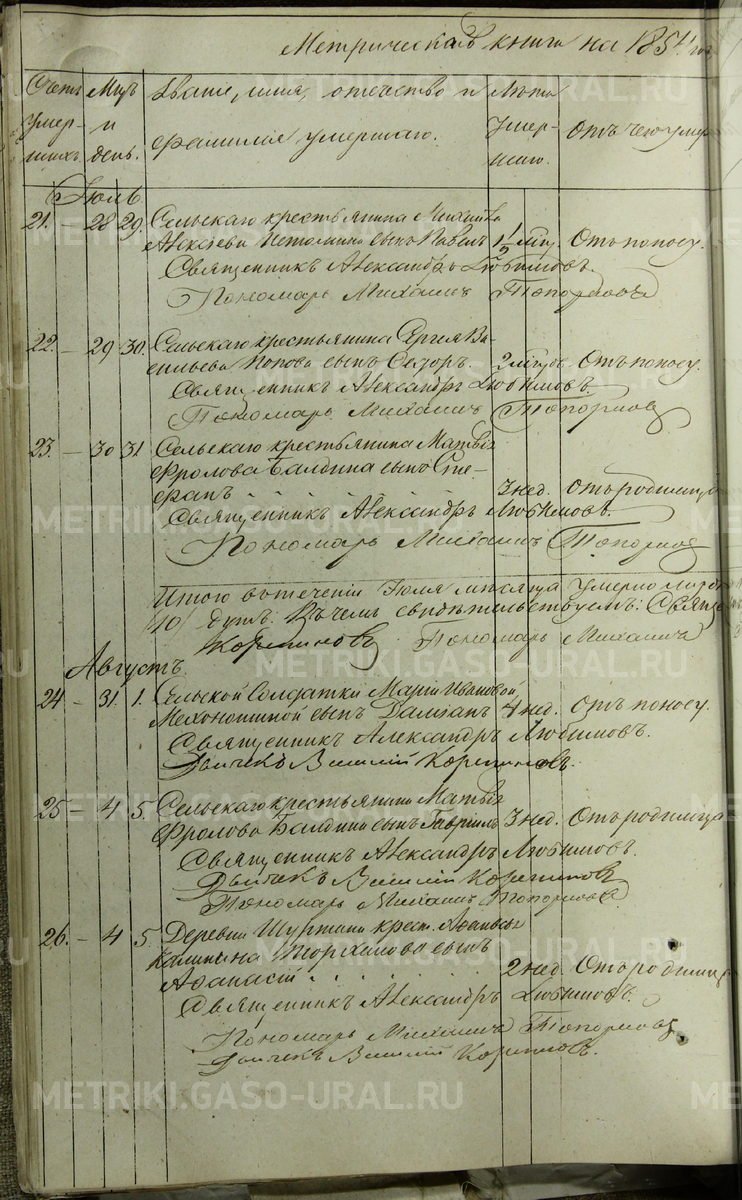 Метрическая книга на 1854 год
Счетъ умер-шихъ.
Мѣц и день.
Званіе, имя, отечество и фамилія умершаго.
Лѣта Умер-шаго.
Отъ чего умеръ
Іюль
21. — 28 29. Сельскаго крестьянина
Алексѣева Истомина сынъ Павелъ 1 1/2 мѣц. Отъ поносу.
Священникъ Александръ Любимовъ.
Пономарь Михаилъ Топорковъ
22. — 29 30. Сельскаго крестьянина Сергея Ва-
сильева Попова сынъ 2 мѣц. Отъ поносу.
Священникъ Александръ Любимовъ.
Пономарь Михаилъ Топорковъ
23. — 30 31 Сельскаго крестьянина Матвѣя
Фролова Балдина сынъ Сте-
фанъ . . . . 3 нед. Отъ родимца
Священникъ Александръ Любимовъ.
Пономарь Михаилъ Топорковъ
Итого въ теченіи Іюля мѣсяца умерло
/10/ душъ. Въ чемъ свидѣтельствуемъ:
Пономарь Михаилъ
Августъ.
24 — 31. 1. Сельской Солдатки Маріи Ивановой
Мехоношиной сынъ Даміанъ 4 нед. Отъ поносу.
Священникъ Александръ Любимовъ.
Дьячекъ Василій
25 — 4 5. Сельскаго крестьянина Матвѣя
Фролова Балдина сынъ Гавріилъ 3 нед. Отъ родимца
Священникъ Александръ Любимовъ.
Дьячекъ Василій
Пономарь Михаилъ Топорковъ
26. — 4 5. Деревни крест.
сынъ
Аѳанасій . . . . 2 нед. Отъ родимца
Священникъ Александръ Любимовъ.
Пономарь Михаилъ Топорковъ
Дьячекъ Василій
METRIKI.GASO-URAL.RU